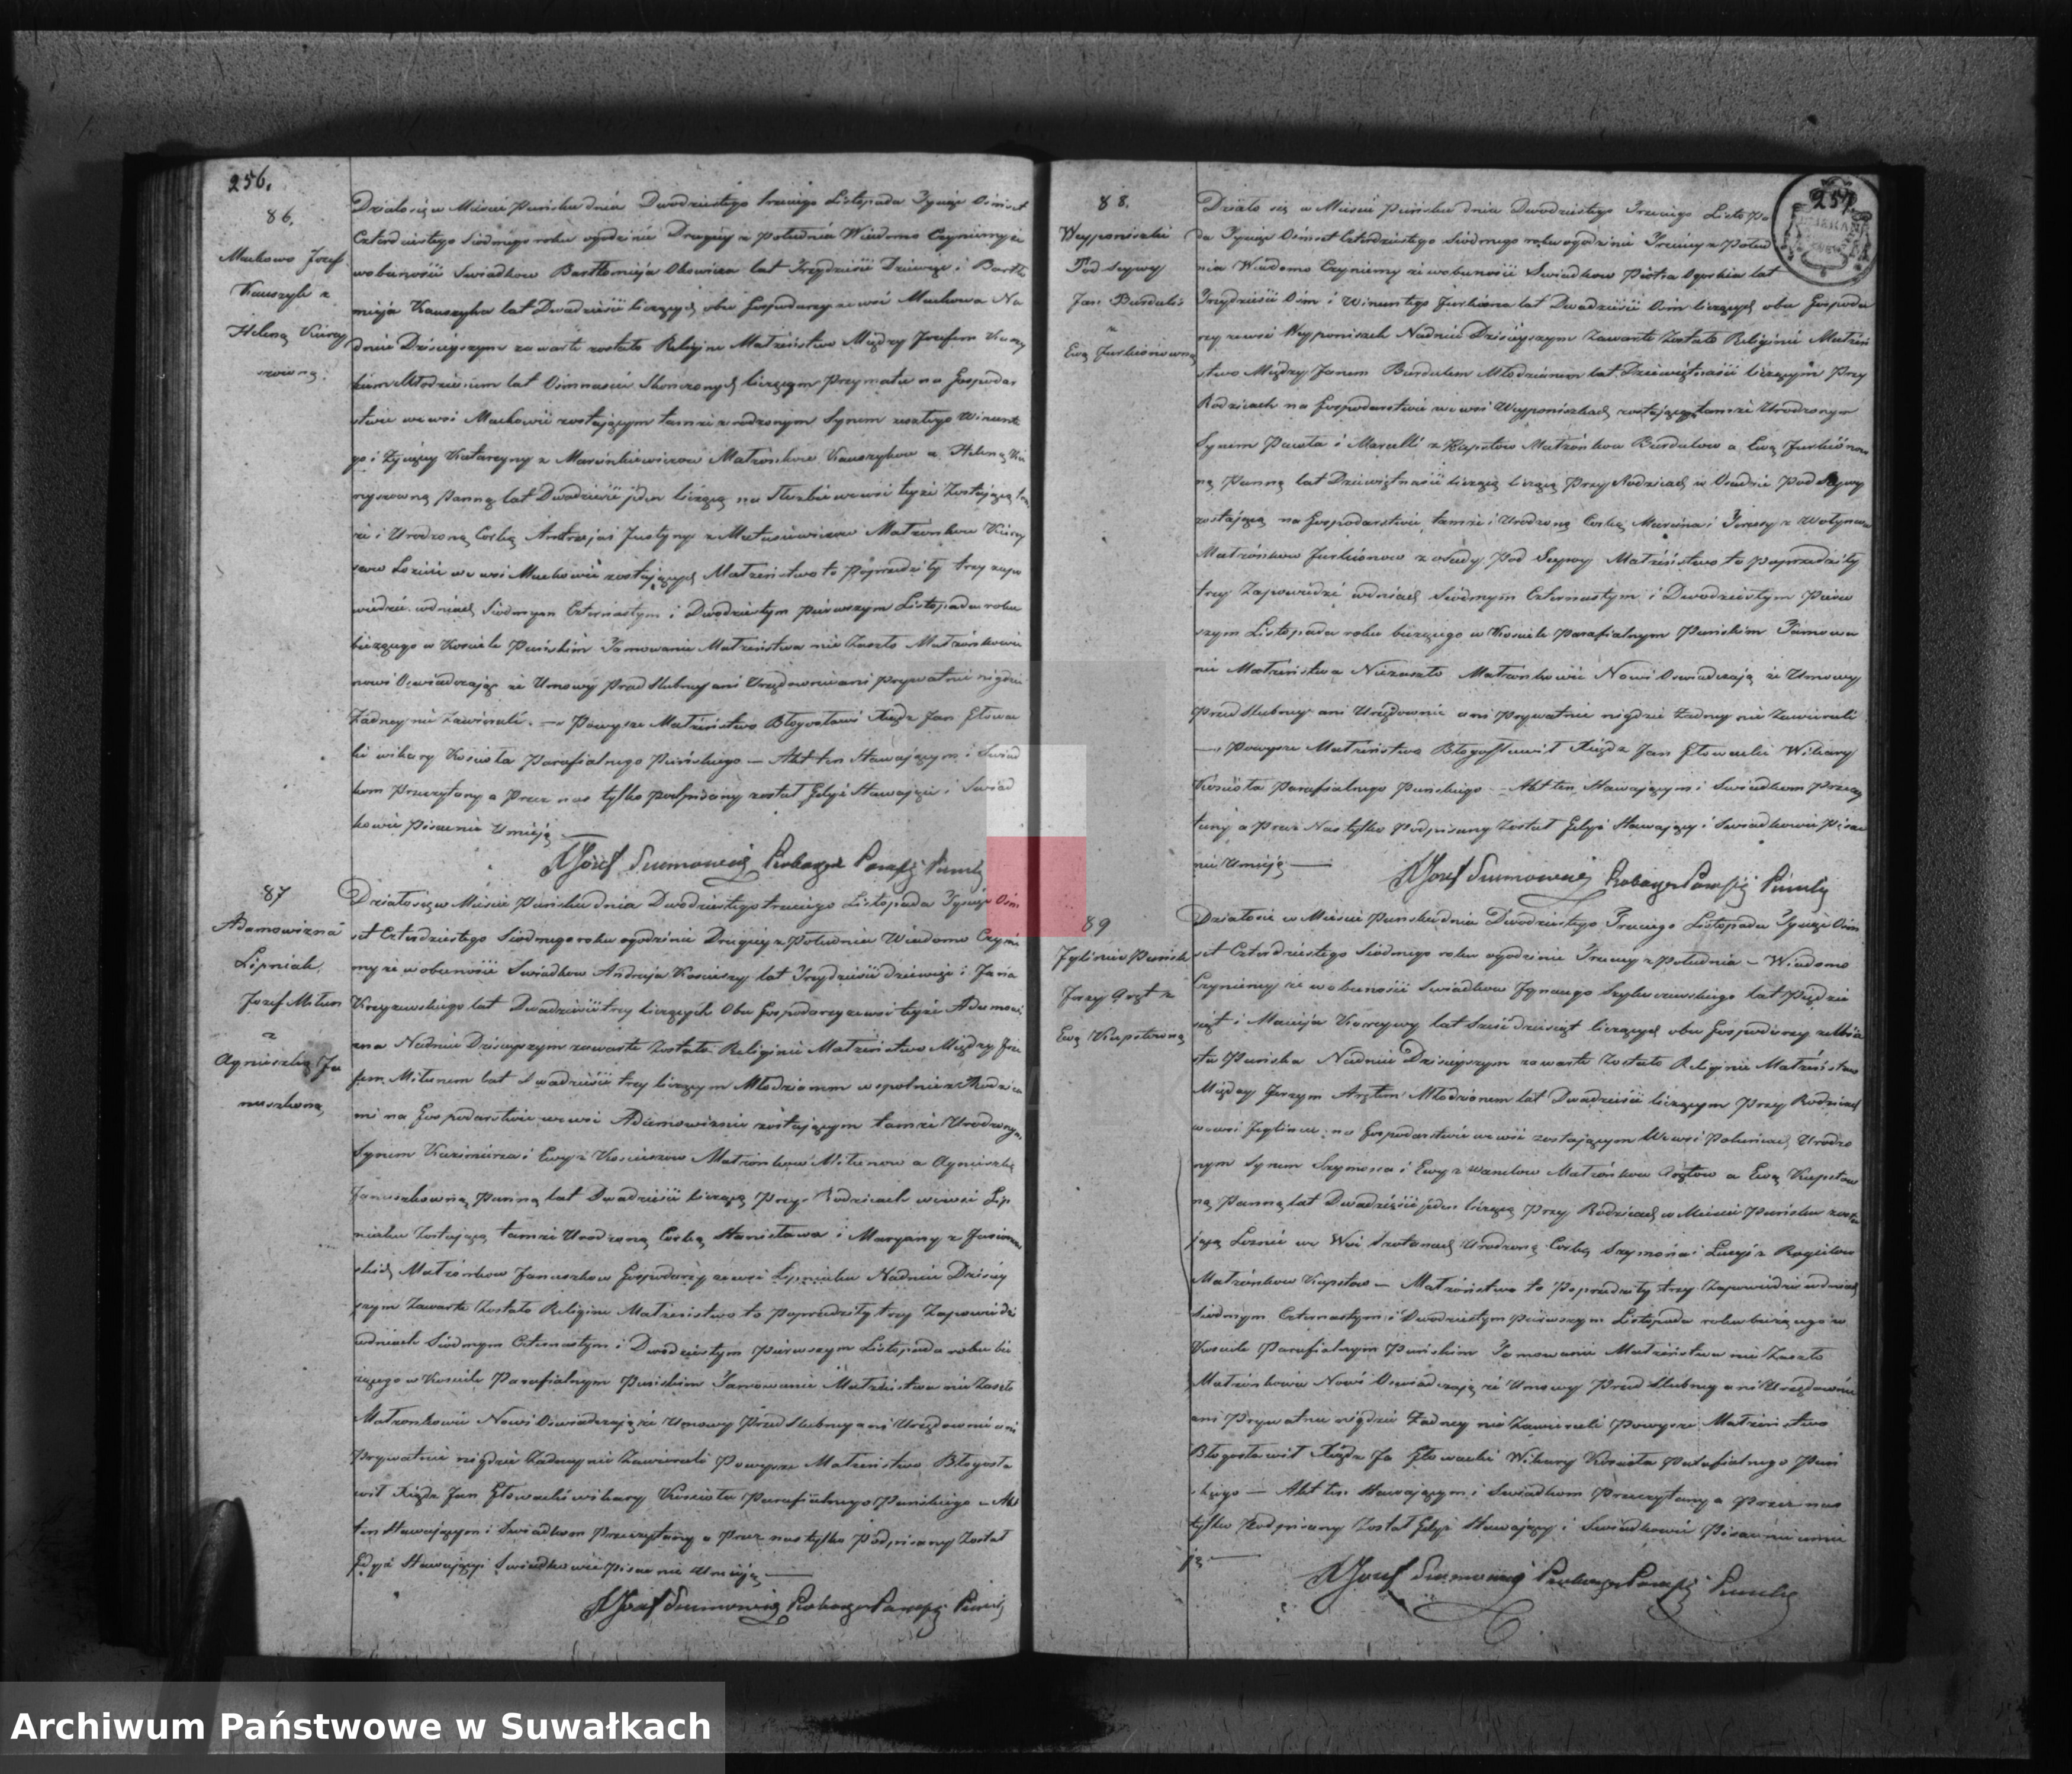 256.
86.
Maćkowo Józef
Kauszyk z
Heleną Kiery
szówną.
Działo się w Mieście Puńsku dnia Dwudziestego trzeciego Listopada Tysiąc Ośmset
Czterdziestego Siódmego roku o godzinie Drugiej z południa Wiadomo Czynimy iż
w obecności Swiadkow Bartłomieja lat Trzydzieści Dziewięć i Bartło
mieja Kauszyka lat Dwadzieścia liczących obu Gospodarzy ze wsi Maćkowa Na
dniu Dzisiejszym zawarte zostało Religijne Małżeństwo Między Józefem Kauszy
kiem Młodzianem lat Ośmnaście Skończonych liczącym przy matce na Gospodar
stwie we wsi Maćkowie zostającym tamże urodzonym Synem zeszłego Wincente
go i Żyjącej Katarzyny z Marcinkiewiczow Małżonkow Kauszykow a Heleną
Panną lat Dwadzieścia jeden liczącą na Służbie we wsi tejże Zostającą
że i Urodzoną Corką Andrzeja i Justyny z Matusiewiczow Małżonkow
we wsi Maćkowie zostających Małżeństwo to Poprzedziły trzy zapo
wiedzie w dniach Siódmym Czternastym i Dwudziestym pierwszym Listopada roku
bieżącego w Kościele Puńskim Tamowanie Małżeństwa nie Zaszło Małżonkowie
nowi Oświadczają iż Umowy Przedślubnej ani Urzędownie ani prywatnie nigdzie
Żadnej nie Zawierali. — Powyższe Małżeństwo Błogosławił Xiądz Jan Głowac
ki wikary Kościoła Parafialnego Puńskiego — Akt ten Stawającym i Swiad
kom Przeczytany a Przez nas tylko podpisany został Gdyż Stawający i Swiad
kowie Pisać nie Umieją —
X Józef Proboszcz Parafij
87
Adamowizna
Lipniak
Józef Milun
z
Agnieszką Ja
nuszkówną
Działo się w Mieście Puńsku dnia Dwudziestego trzeciego Listopada Tysiąc Ośm
set Czterdziestego Siódmego roku o godzinie Drugiej z Południa Wiadomo Czyni
my iż w obecności Swiadkow Andrzeja lat Trzydzieści dziewięć i
lat Dwadzieścia trzy liczących Obu Gospodarzy ze wsi tejże Adamowi
zna Nadniu Dzisiejszym zawarte Zostało Religijne Małżeństwo Między Józe
fem Milunem lat Dwadzieścia trzy liczącym Młodzianem wspólnie z Rodzica
mi na Gospodarstwie we wsi Adamowiznie zostającym tamże Urodzonym
Synem Kazimierza i Ewy z Małżonkow Milunow a Agnieszką
Januszkowną Panną lat Dwadzieścia liczącą Przy Rodzicach we wsi Lip
niaku Zostającą tamże Urodzoną Corką Stanisława i Maryany z
Małżonkow Januszkow Gospodarzy ze wsi Lipniaku Nadniu Dzisiej
szym Zawarte Zostało Religijne Małżeństwo to Poprzedziły trzy Zapowiedzie
w dniach Siódmym Czternastym i Dwudziestym pierwszym Listopada roku bie
żącego w Kościele Parafialnym Puńskim Tamowanie Małżeństwa nie Zaszło
Małżonkowie Nowi Oświadczają iż Umowy Przedślubnej ani Urzędownie ani
Prywatnie nigdzie Żadnej nie Zawierali Powyższe Małżeństwo Błogosła
wił Xiądz Jan Głowacki wikary Kościoła Parafialnego Puńskiego — Akt
ten Stawającym i Swiadkom Przeczytany a Przez nas tylko Podpisany Został
Gdyż Stawający i Swiadkowie Pisać nie Umieją —
X Józef Proboszcz Parafij
257.
88.
Wojponiszki
Pod Sejwy
Jan Burdul
z
Ewą Jurkiónowną
Działo się w Mieście Puńsku dnia Dwudziestego Trzeciego Listopa
da Tysiąc Ośmset Czterdziestego Siódmego roku o godzinie Trzeciej z Połud
nia Wiadomo Czynimy iż w obecności Swiadkow Piotra lat
Trzydzieści Ośm i Wincentego Jurkiana lat Dwadzieścia Ośm liczących obu Gospoda
rzy ze wsi Wojponiszek Nadniu Dzisiejszym Zawarte Zostało Religijne Małżeń
stwo Między Janem Burdulem Młodzianem lat Dziewiętnaście liczącym Przy
Rodzicach na Gospodarstwie we wsi Wojponiszkach zostającym tamże Urodzonym
Synem Pawła i Marcelli z Małżonkow Burdulow a Ewą Jurkióno
ną Panną lat Dziewiętnaście liczącą Przy Rodzicach w Osadzie Pod Sejwy
zostającą na Gospodarstwie tamże i Urodzoną Corką Marcina i Teressy z
Małżonkow Jurkiónow z osady Pod Sejwy Małżeństwo to poprzedziły
trzy Zapowiedzie w dniach Siódmym Czternastym i Dwudziestym Pierw
szym Listopada roku bieżącego w Kościele Parafialnym Puńskim Tamowa
nie Małżeństwa Nie zaszło Małżonkowie Nowi Oswiadczają iż Umowy
Przedślubnej ani Urzędownie ani Prywatnie nigdzie Żadnej nie Zawierali
— Powyższe Małżeństwo Błogosławił Xiądz Jan Głowacki Wikary
Kościoła Parafialnego Puńskiego — Akt ten Stawającym i Swiadkom Przeczy
tany a Przez Nas tylko Podpisany Został Gdyż Stawający i Swiadkowie Pisać
nie Umieją —
X Józef Proboszcz Parafij
89
Jegliniec Puńsk
Jerzy z
Ewą Kupstówną
Działo się w Mieście Puńsku dnia Dwudziestego Trzeciego Listopada Tysiąc Ośm
set Czterdziestego Siódmego roku o godzinie Trzeciej z Południa — Wiadomo
Czynimy iż w obecności Swiadkow Ignacego lat Pięćdzie
siąt i Macieja lat Sześćdziesiąt liczących obu Gospodarzy z Mia
sta Puńska Nadniu Dzisiejszym zawarte Zostało Religijne Małżeństwo
Między Jerzym Młodzianem lat Dwadzieścia liczącym Przy Rodzicach
we wsi Jeglińcu na Gospodarstwie we wsi zostającym Urodzo
nym Synem Szymona i Ewy z Małżonkow a Ewą Kupstow
ną Panną lat Dwadzieścia jeden liczącą Przy Rodzicach w Mieście Puńsku zosta
jącą we Wsi Szołtanach Urodzoną Corką Szymona i Łucyi z
Małżonkow Kupstow — Małżeństwo to Poprzedziły trzy Zapowiedzie w dniach
Siódmym Czternastym i Dwudziestym pierwszym Listopada roku bieżącego w
Kościele Parafialnym Puńskim Tamowanie Małżeństwa nie Zaszło
Małżonkowie Nowi Oswiadczają iż Umowy Przedślubnej ani Urzędownie
ani Prywatnie nigdzie Żadnej nie Zawierali Powyższe Małżeństwo
Błogosławił Xiądz Ja Głowacki Wikary Kościoła Parafialnego Puń
skiego — Akt ten Stawającym i Swiadkom Przeczytany a Przez nas
tylko Podpisany Został Gdyż Stawający i Swiadkowie Pisać nie umie
ją —
X Józef Proboszcz Parafij
Archiwum Państwowe w Suwałkach